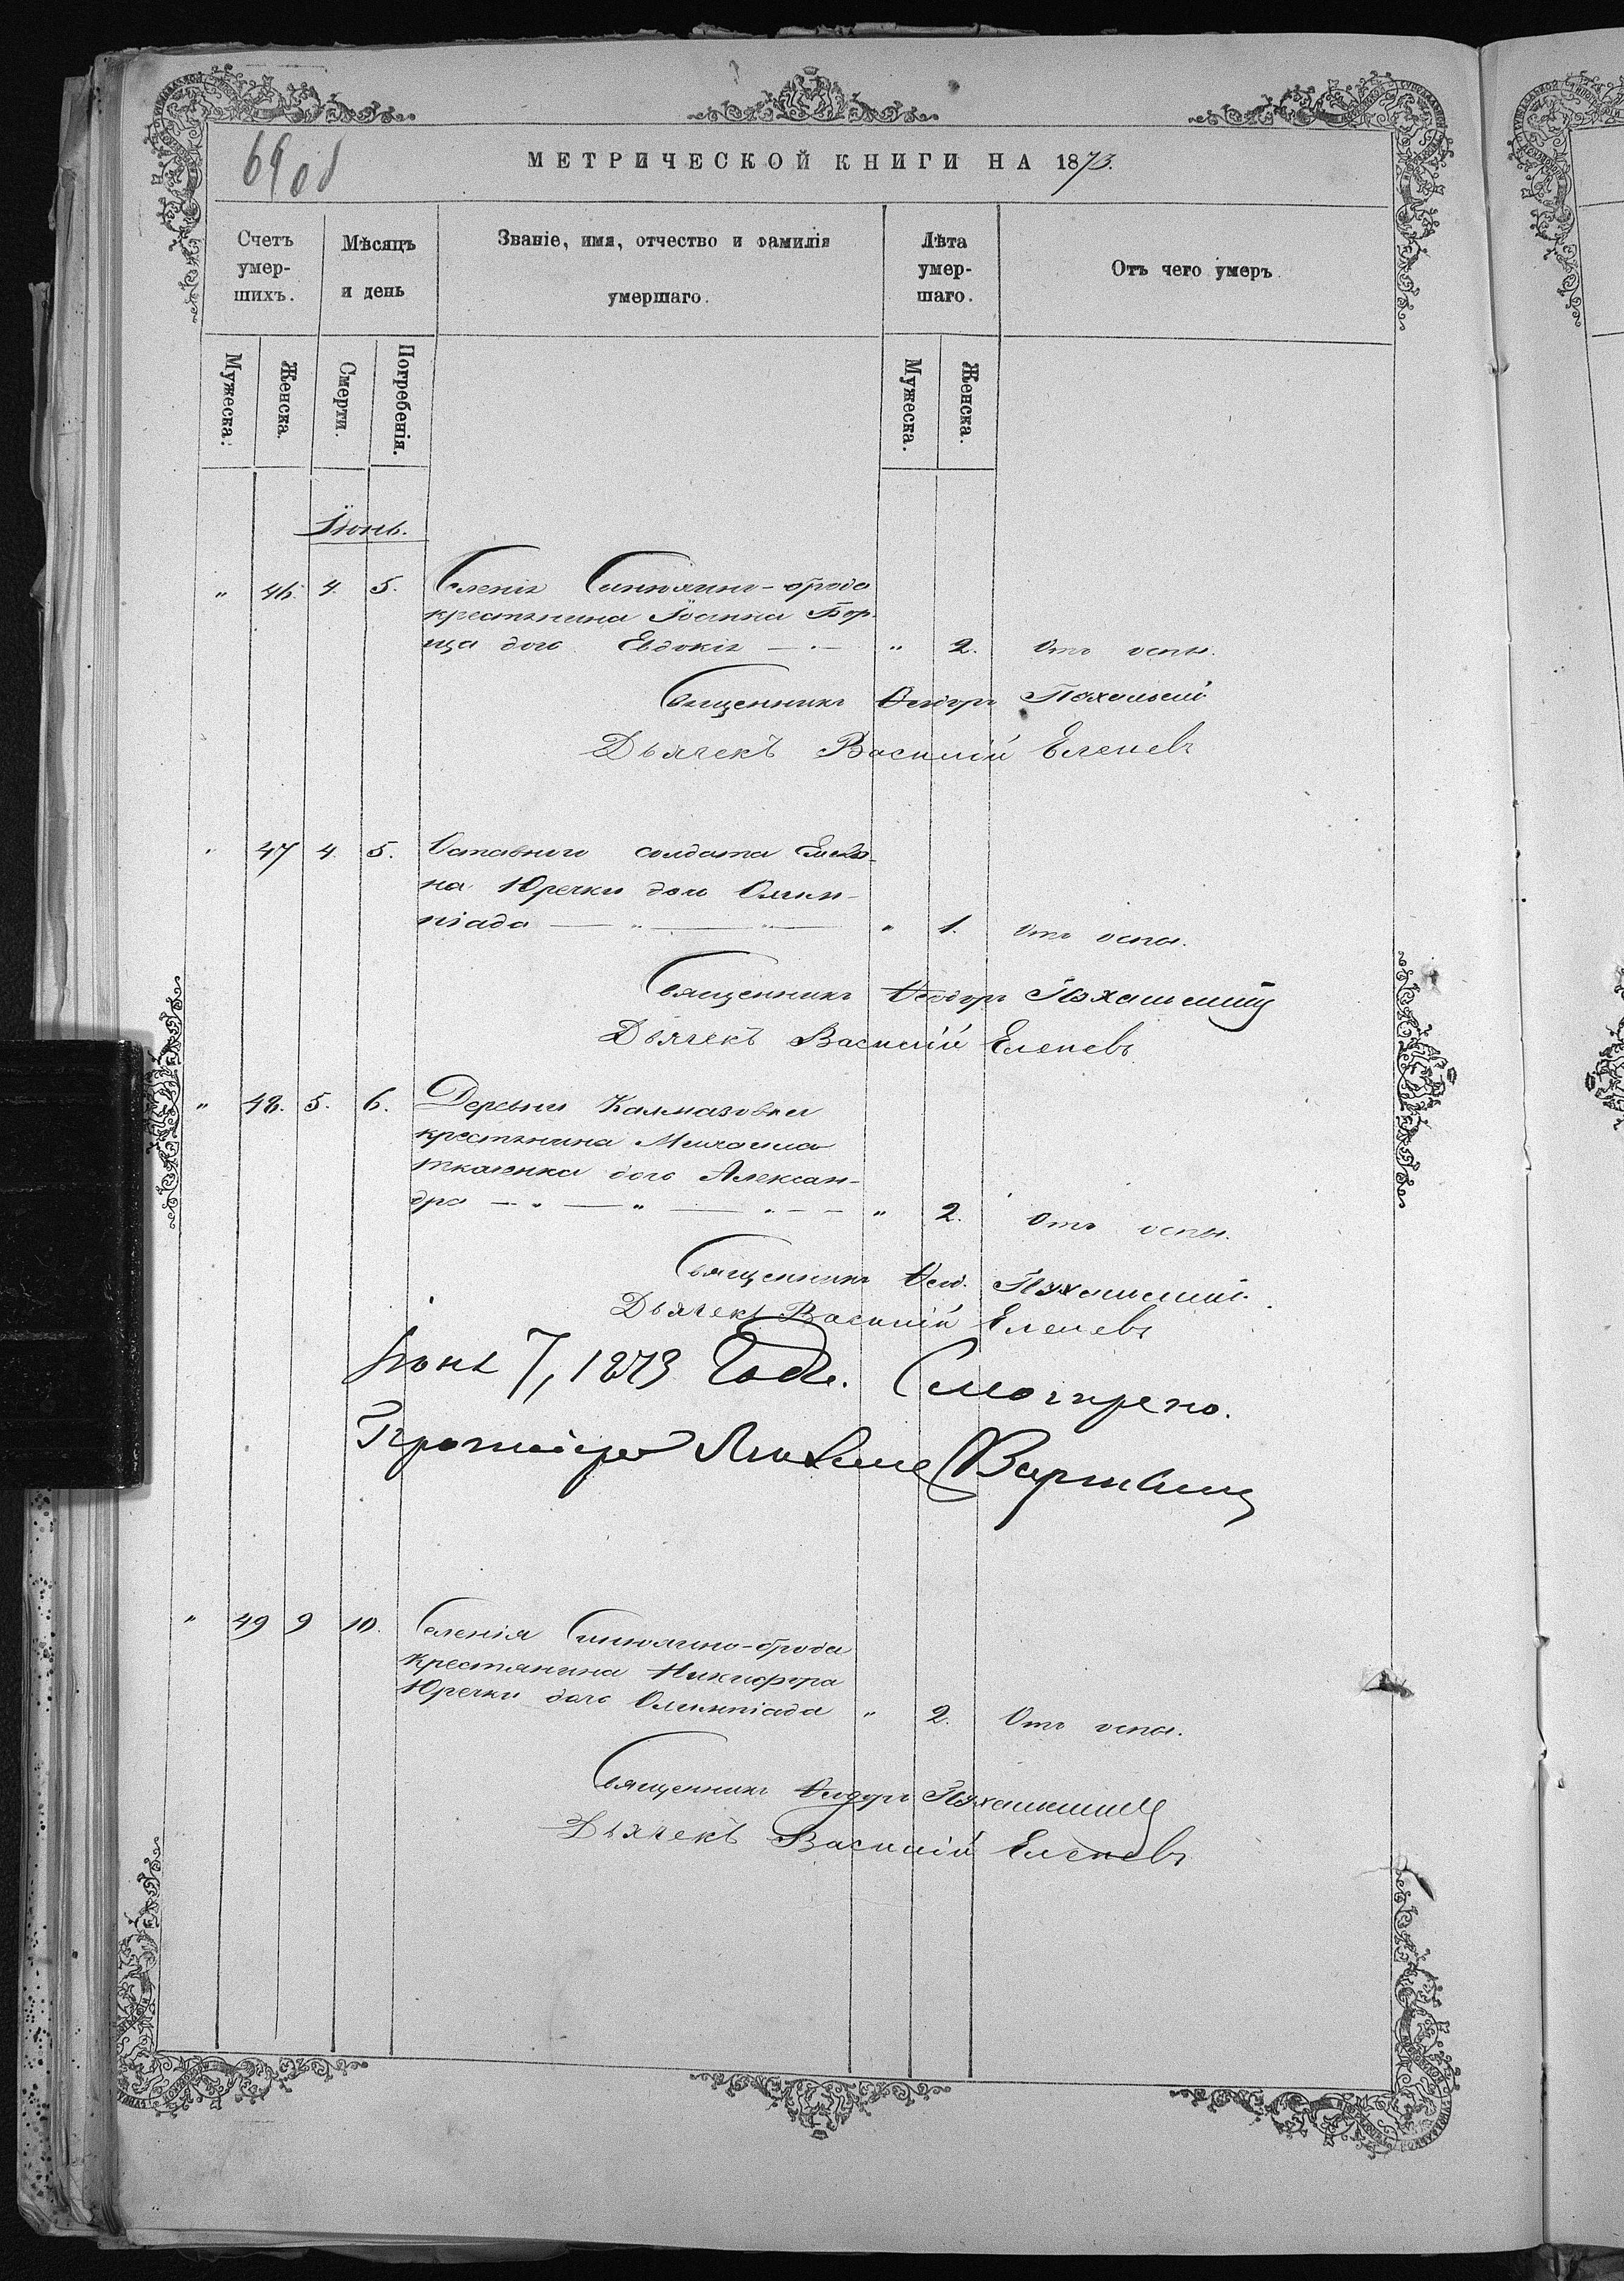 69 об
МЕТРИЧЕСКОЙ КНИГИ НА 1873.
Счетъ умер- шихъ.
Мѣсяцъ и день
Званіе, имя, отчество и фамилія умершаго.
Лѣта умер- шаго.
Отъ чего умеръ.
Мужеска.
Женска.
Смерти.
Погребенія.
Мужеска.
Женска.
Іюнь.
" 46. 4. 5. Селенія Синюхино-брода
крестьянина Іоанна Бор-
ща дочь Евдокія — " — " 2. Отъ оспы.
Священникъ Ѳеодоръ
Дьячекъ Василій Еленевъ
" 47 4. 5. Отставного солдата
на Юречки дочь Олим-
піада — " — " — " 1. Отъ оспы.
Священникъ Ѳеодоръ
Дьячекъ Василій Еленевъ
" 48. 5. 6. Деревни Калмазовки
крестьянина Михаила
Ткаченка дочь Алексан-
дра — " — " — " — " 2. Отъ оспы.
Священникъ Ѳеод.
Дьячекъ Василій Еленевъ
Іюня 7, 1873 Года. Смотрено.
Протоіерей
" 49 9 10. Селенія Синюхино-брода
крестьянина Никифора
Юречки дочь Олимпіада " 2. Отъ оспы.
Священникъ Ѳеодоръ
Дьячекъ Василій Еленевъ